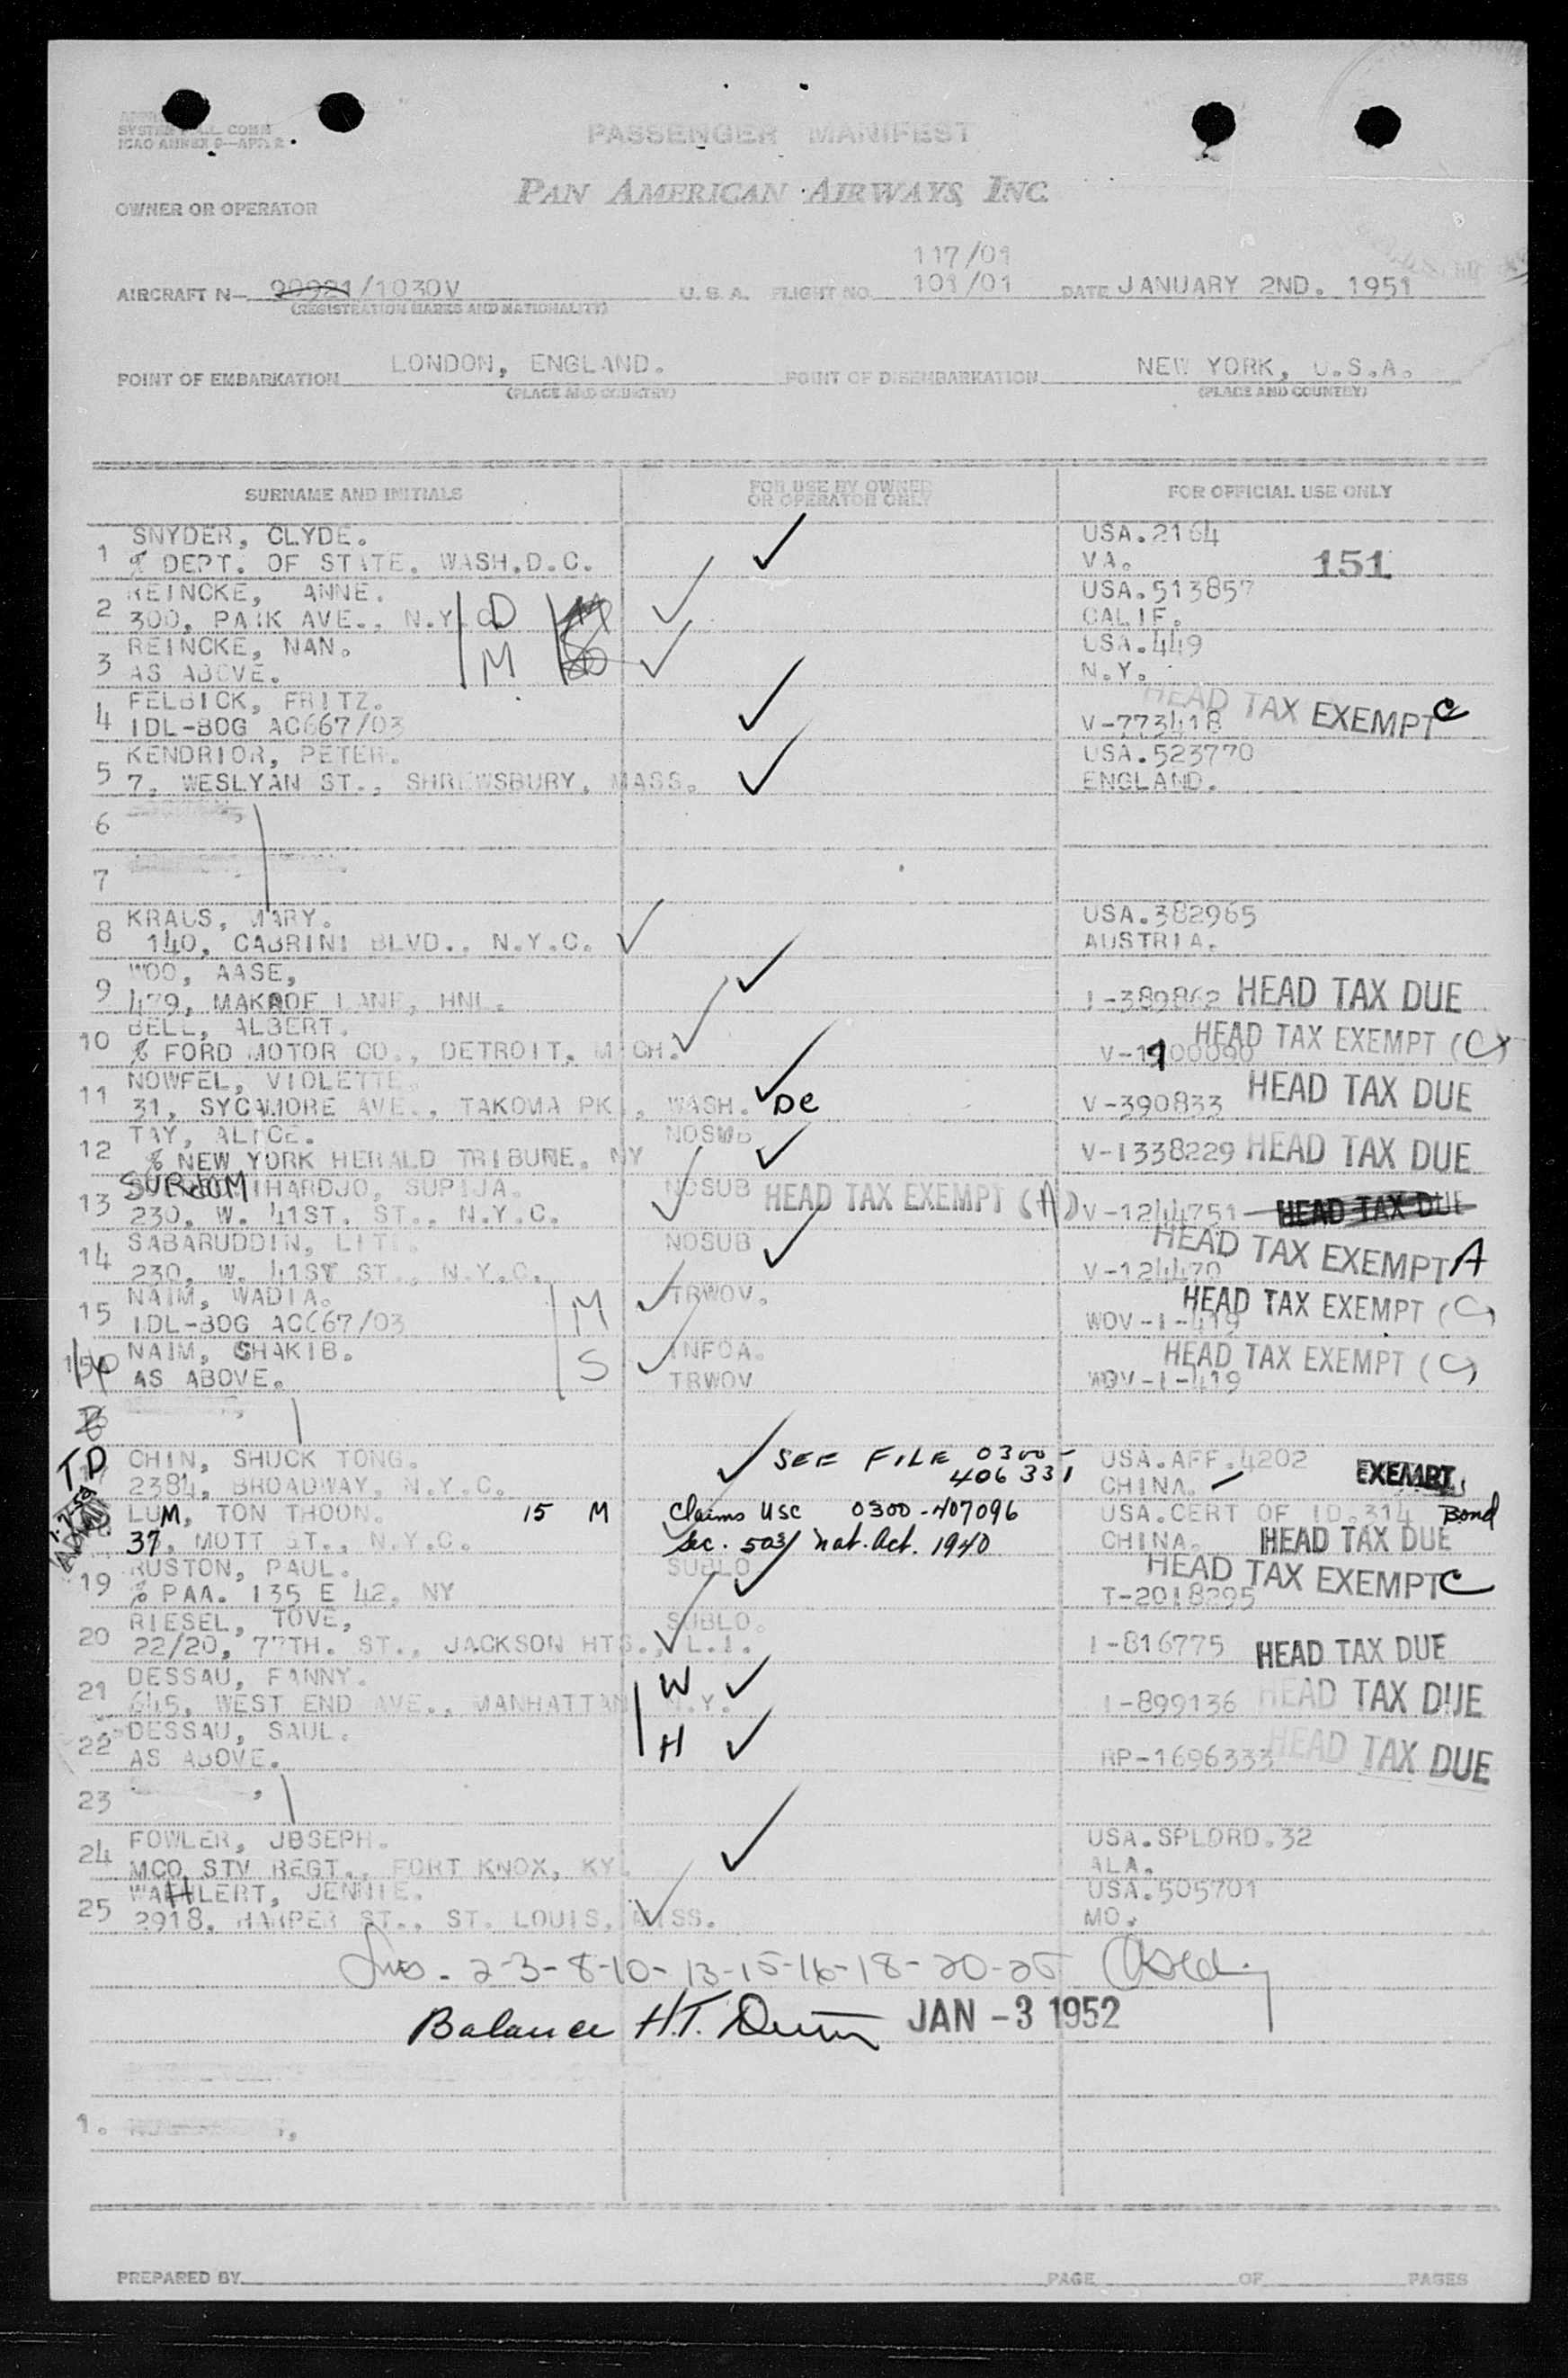 ICAO ANNEX 9—APP. 2
PASSENGER MANIFEST
PAN AMERICAN AIRWAYS, INC.
OWNER OR OPERATOR
117/01
AIRCRAFT N— 90921/1030V U.S.A. FLIGHT NO. 101/01 DATE JANUARY 2ND. 1951
(REGISTRATION MARKS AND NATIONALITY)
POINT OF EMBARKATION LONDON, ENGLAND. POINT OF DISEMBARKATION NEW YORK, U.S.A.
(PLACE AND COUNTRY) (PLACE AND COUNTRY)
SURNAME AND INITIALS FOR USE BY OWNER OR OPERATOR ONLY FOR OFFICIAL USE ONLY
SNYDER, CLYDE. USA.2164
1 % DEPT. OF STATE, WASH.D.C. VA. 151
REINCKE, ANNE. USA.513857
2 300, PARK AVE., N.Y.C. D CALIF.
REINCKE, NAN. USA.449
3 AS ABOVE. M N.Y.
FELBICK, FRITZ. HEAD TAX EXEMPT C
4 IDL-BOG AC667/03 V-773418
KENDRIOR, PETER. USA.523770
5 7, WESLYAN ST., SHREWSBURY, MASS. ENGLAND.
6
7
KRAUS, MARY. USA.382965
8 140, CABRINI BLVD., N.Y.C. AUSTRIA.
WOO, AASE,
9 479, MAKAOE LANE, HNL. I-389862 HEAD TAX DUE
BELL, ALBERT. HEAD TAX EXEMPT (C)
10 % FORD MOTOR CO., DETROIT, MICH. V-1900090
NOWFEL, VIOLETTE. HEAD TAX DUE
11 31, SYCAMORE AVE., TAKOMA PK., WASH. DC V-390833
TAY, ALICE. NOSUB
12 % NEW YORK HERALD TRIBUNE, NY V-1338229 HEAD TAX DUE
SURJOMIHARDJO, SUPIJA. NOSUB HEAD TAX EXEMPT (A)
13 230, W. 41ST. ST., N.Y.C. V-1244751 HEAD TAX DUE
SABARUDDIN, LITI. NOSUB HEAD TAX EXEMPT A
14 230, W. 41ST ST., N.Y.C. V-124470
NAIM, WADIA. M TRWOV. HEAD TAX EXEMPT (C)
15 IDL-BOG AC667/03 WOV-I-419
NAIM, CHAKIB. S INFOA. HEAD TAX EXEMPT (C)
AS ABOVE. TRWOV WOV-I-419
TD CHIN, SHUCK TONG. SEE FILE 0300- USA.AFF.4202 EXEMPT
17 2384, BROADWAY, N.Y.C. 406331 CHINA.
LUM, TON THOON. 15 M Claims USC 0300-407096 USA.CERT OF ID.314 Bond
37, MOTT ST., N.Y.C. Sec. 503 Nat. Act. 1940 CHINA. HEAD TAX DUE
RUSTON, PAUL. SUBLO HEAD TAX EXEMPT C
19 % PAA. 135 E 42, NY T-2018295
RIESEL, TOVE, SUBLO.
20 22/20, 77TH. ST., JACKSON HTS., L.I. I-816775 HEAD TAX DUE
DESSAU, FANNY. W
21 645, WEST END AVE., MANHATTAN N.Y. I-899136 HEAD TAX DUE
DESSAU, SAUL. H
22 AS ABOVE. RP-1696333 HEAD TAX DUE
23
FOWLER, JOSEPH. USA.SPLORD.32
24 MCO STV REGT., FORT KNOX, KY. ALA.
WAHLERT, JENNIE. USA.505701
25 2918, HARPER ST., ST. LOUIS, MISS. MO.
2-3-8-10-13-15-16-18-20-25
Balance H.T. JAN -3 1952
1.
PREPARED BY PAGE OF PAGES